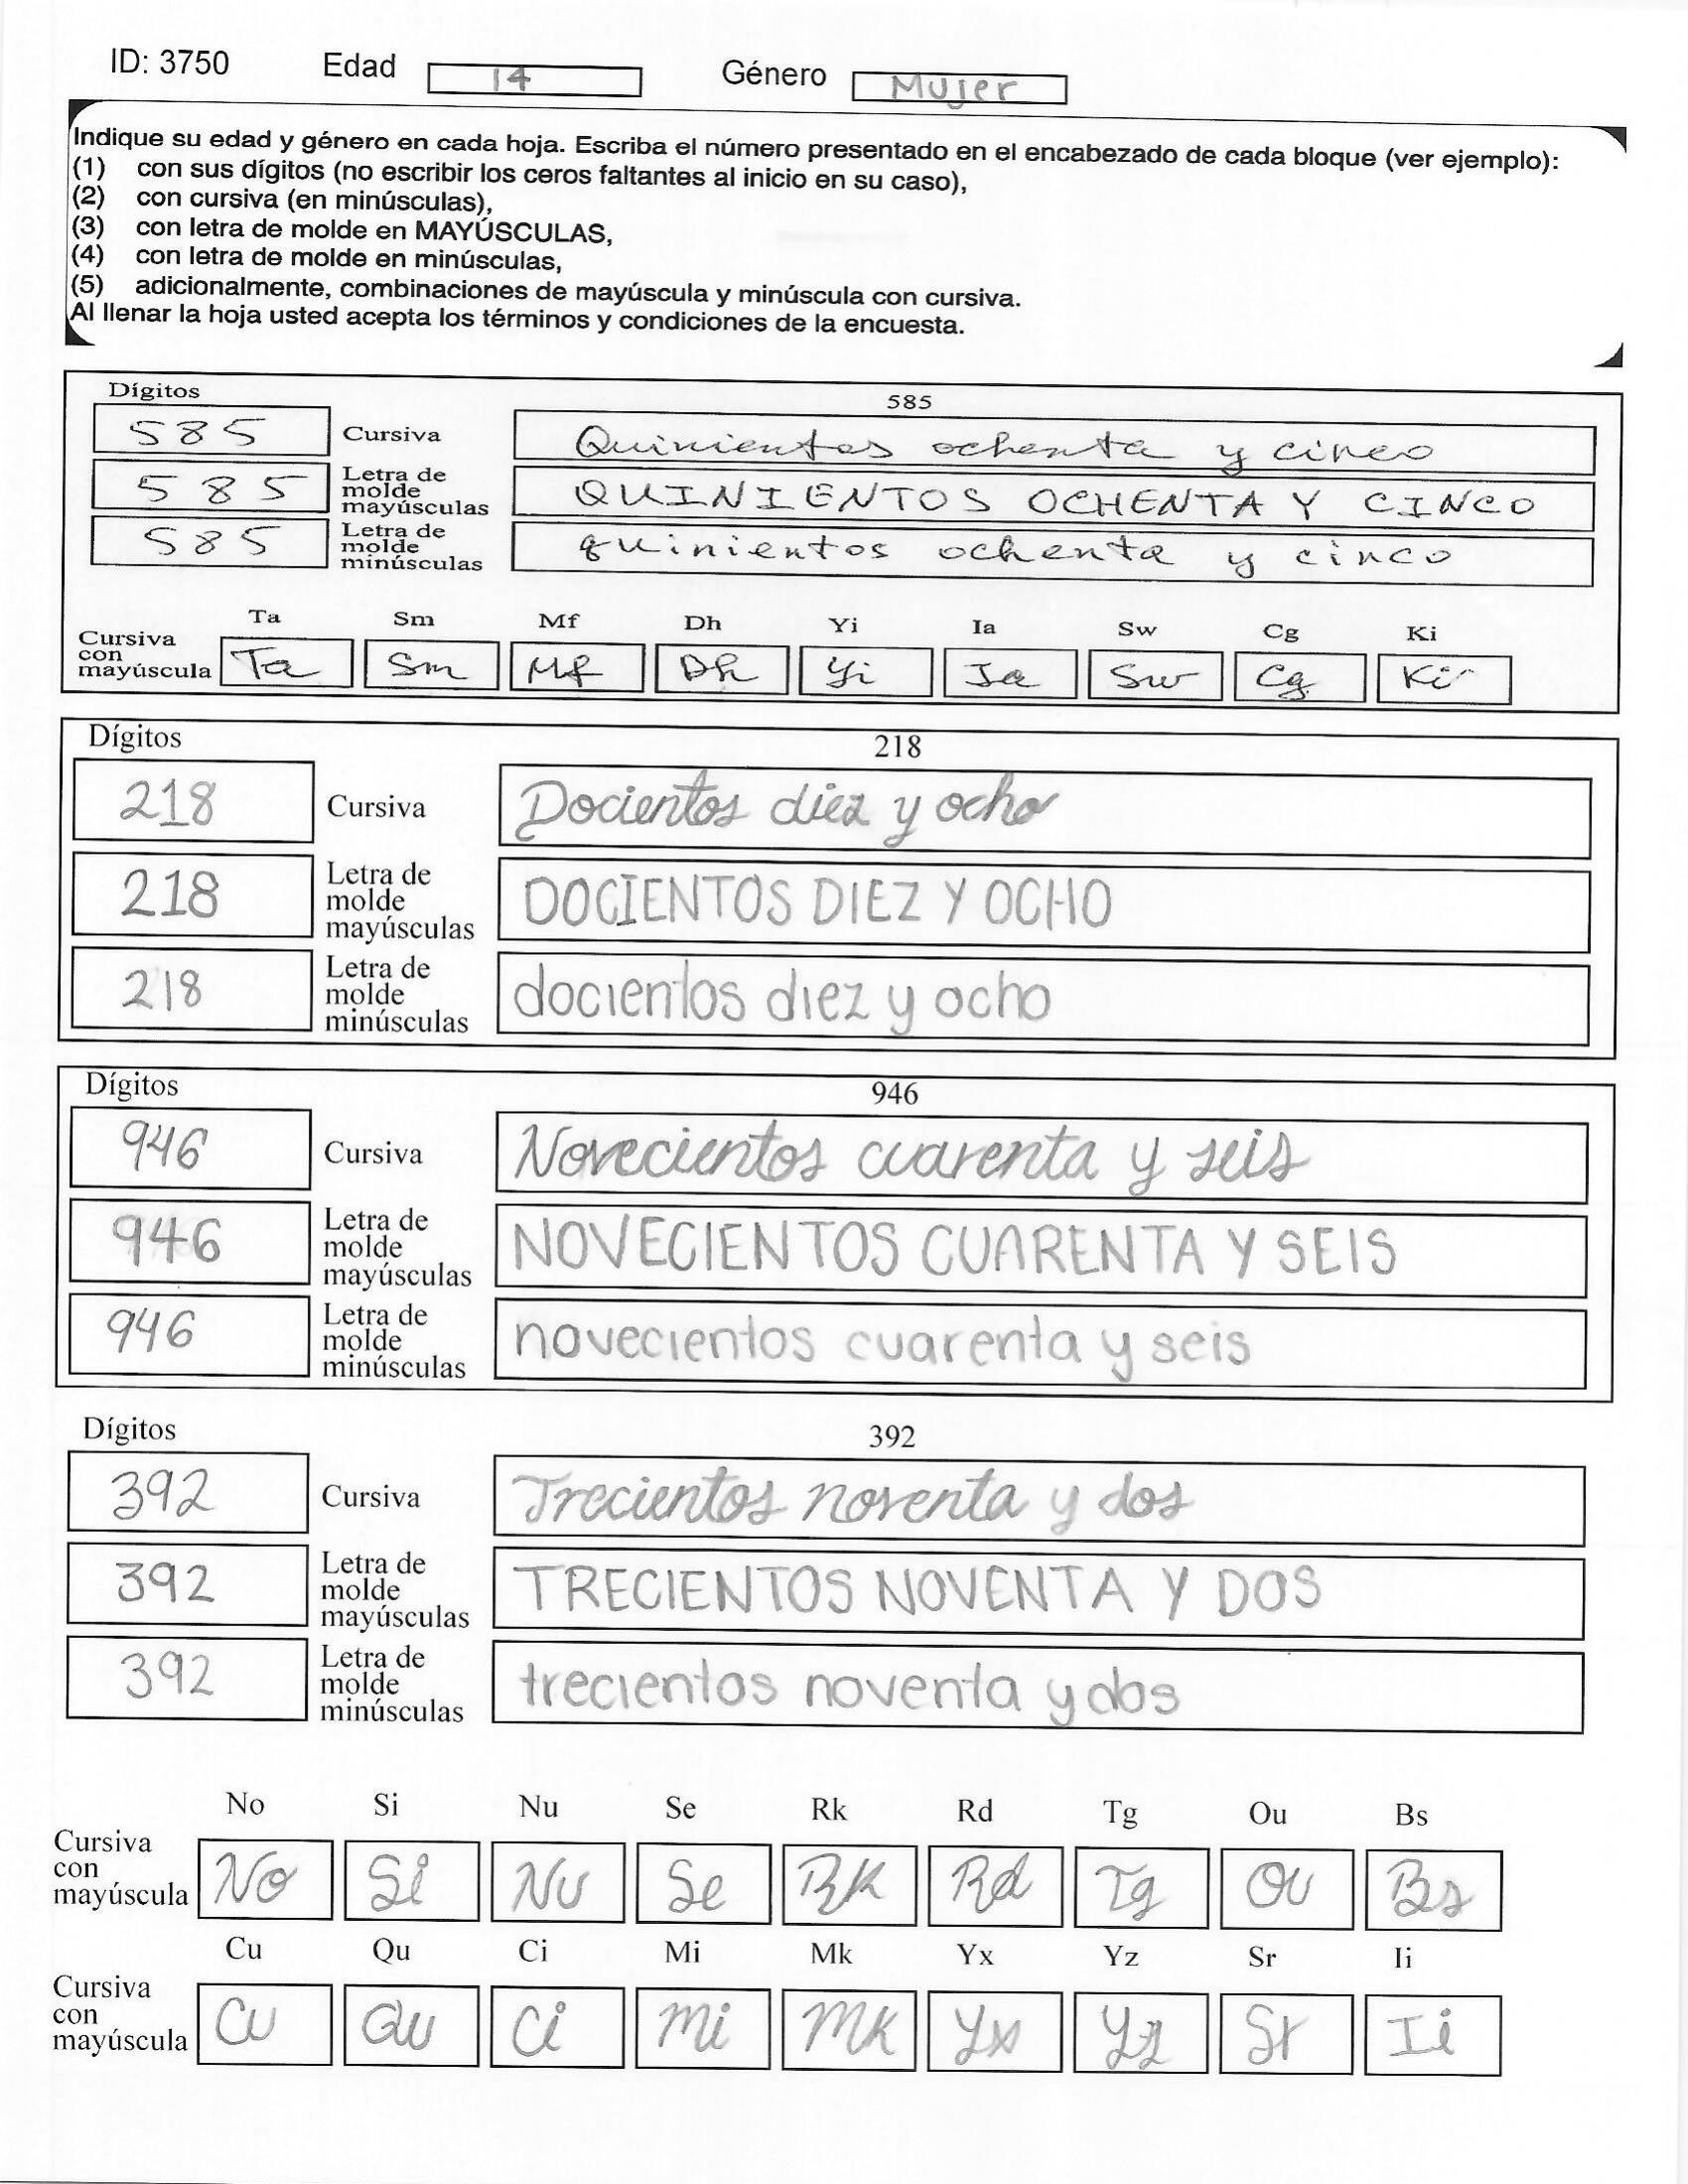 ID: 3750 Edad 14 Género Mujer
Indique su edad y género en cada hoja. Escriba el número presentado en el encabezado de cada bloque (ver ejemplo):
(1) con sus dígitos (no escribir los ceros faltantes al inicio en su caso),
(2) con cursiva (en minúsculas),
(3) con letra de molde en MAYÚSCULAS,
(4) con letra de molde en minúsculas,
(5) adicionalmente, combinaciones de mayúscula y minúscula con cursiva.
Al llenar la hoja usted acepta los términos y condiciones de la encuesta.
Dígitos 585
585 Cursiva Quinientos ochenta y cinco
585 Letra de molde mayúsculas QUINIENTOS OCHENTA Y CINCO
585 Letra de molde minúsculas quinientos ochenta y cinco
Ta Sm Mf Dh Yi Ia Sw Cg Ki
Cursiva con mayúscula Ta Sm Mf Dh Yi Ia Sw Cg Ki
Dígitos 218
218 Cursiva Docientos diez y ocho
218 Letra de molde mayúsculas DOCIENTOS DIEZ Y OCHO
218 Letra de molde minúsculas docientos diez y ocho
Dígitos 946
946 Cursiva Novecientos cuarenta y seis
946 Letra de molde mayúsculas NOVECIENTOS CUARENTA Y SEIS
946 Letra de molde minúsculas novecientos cuarenta y seis
Dígitos 392
392 Cursiva Trecientos noventa y dos
392 Letra de molde mayúsculas TRECIENTOS NOVENTA Y DOS
392 Letra de molde minúsculas trecientos noventa y dos
No Si Nu Se Rk Rd Tg Ou Bs
Cursiva con mayúscula No Si Nu Se Rk Rd Tg Ou Bs
Cu Qu Ci Mi Mk Yx Yz Sr Ii
Cursiva con mayúscula Cu Qu Ci Mi Mk Yx Yz Sr Ii